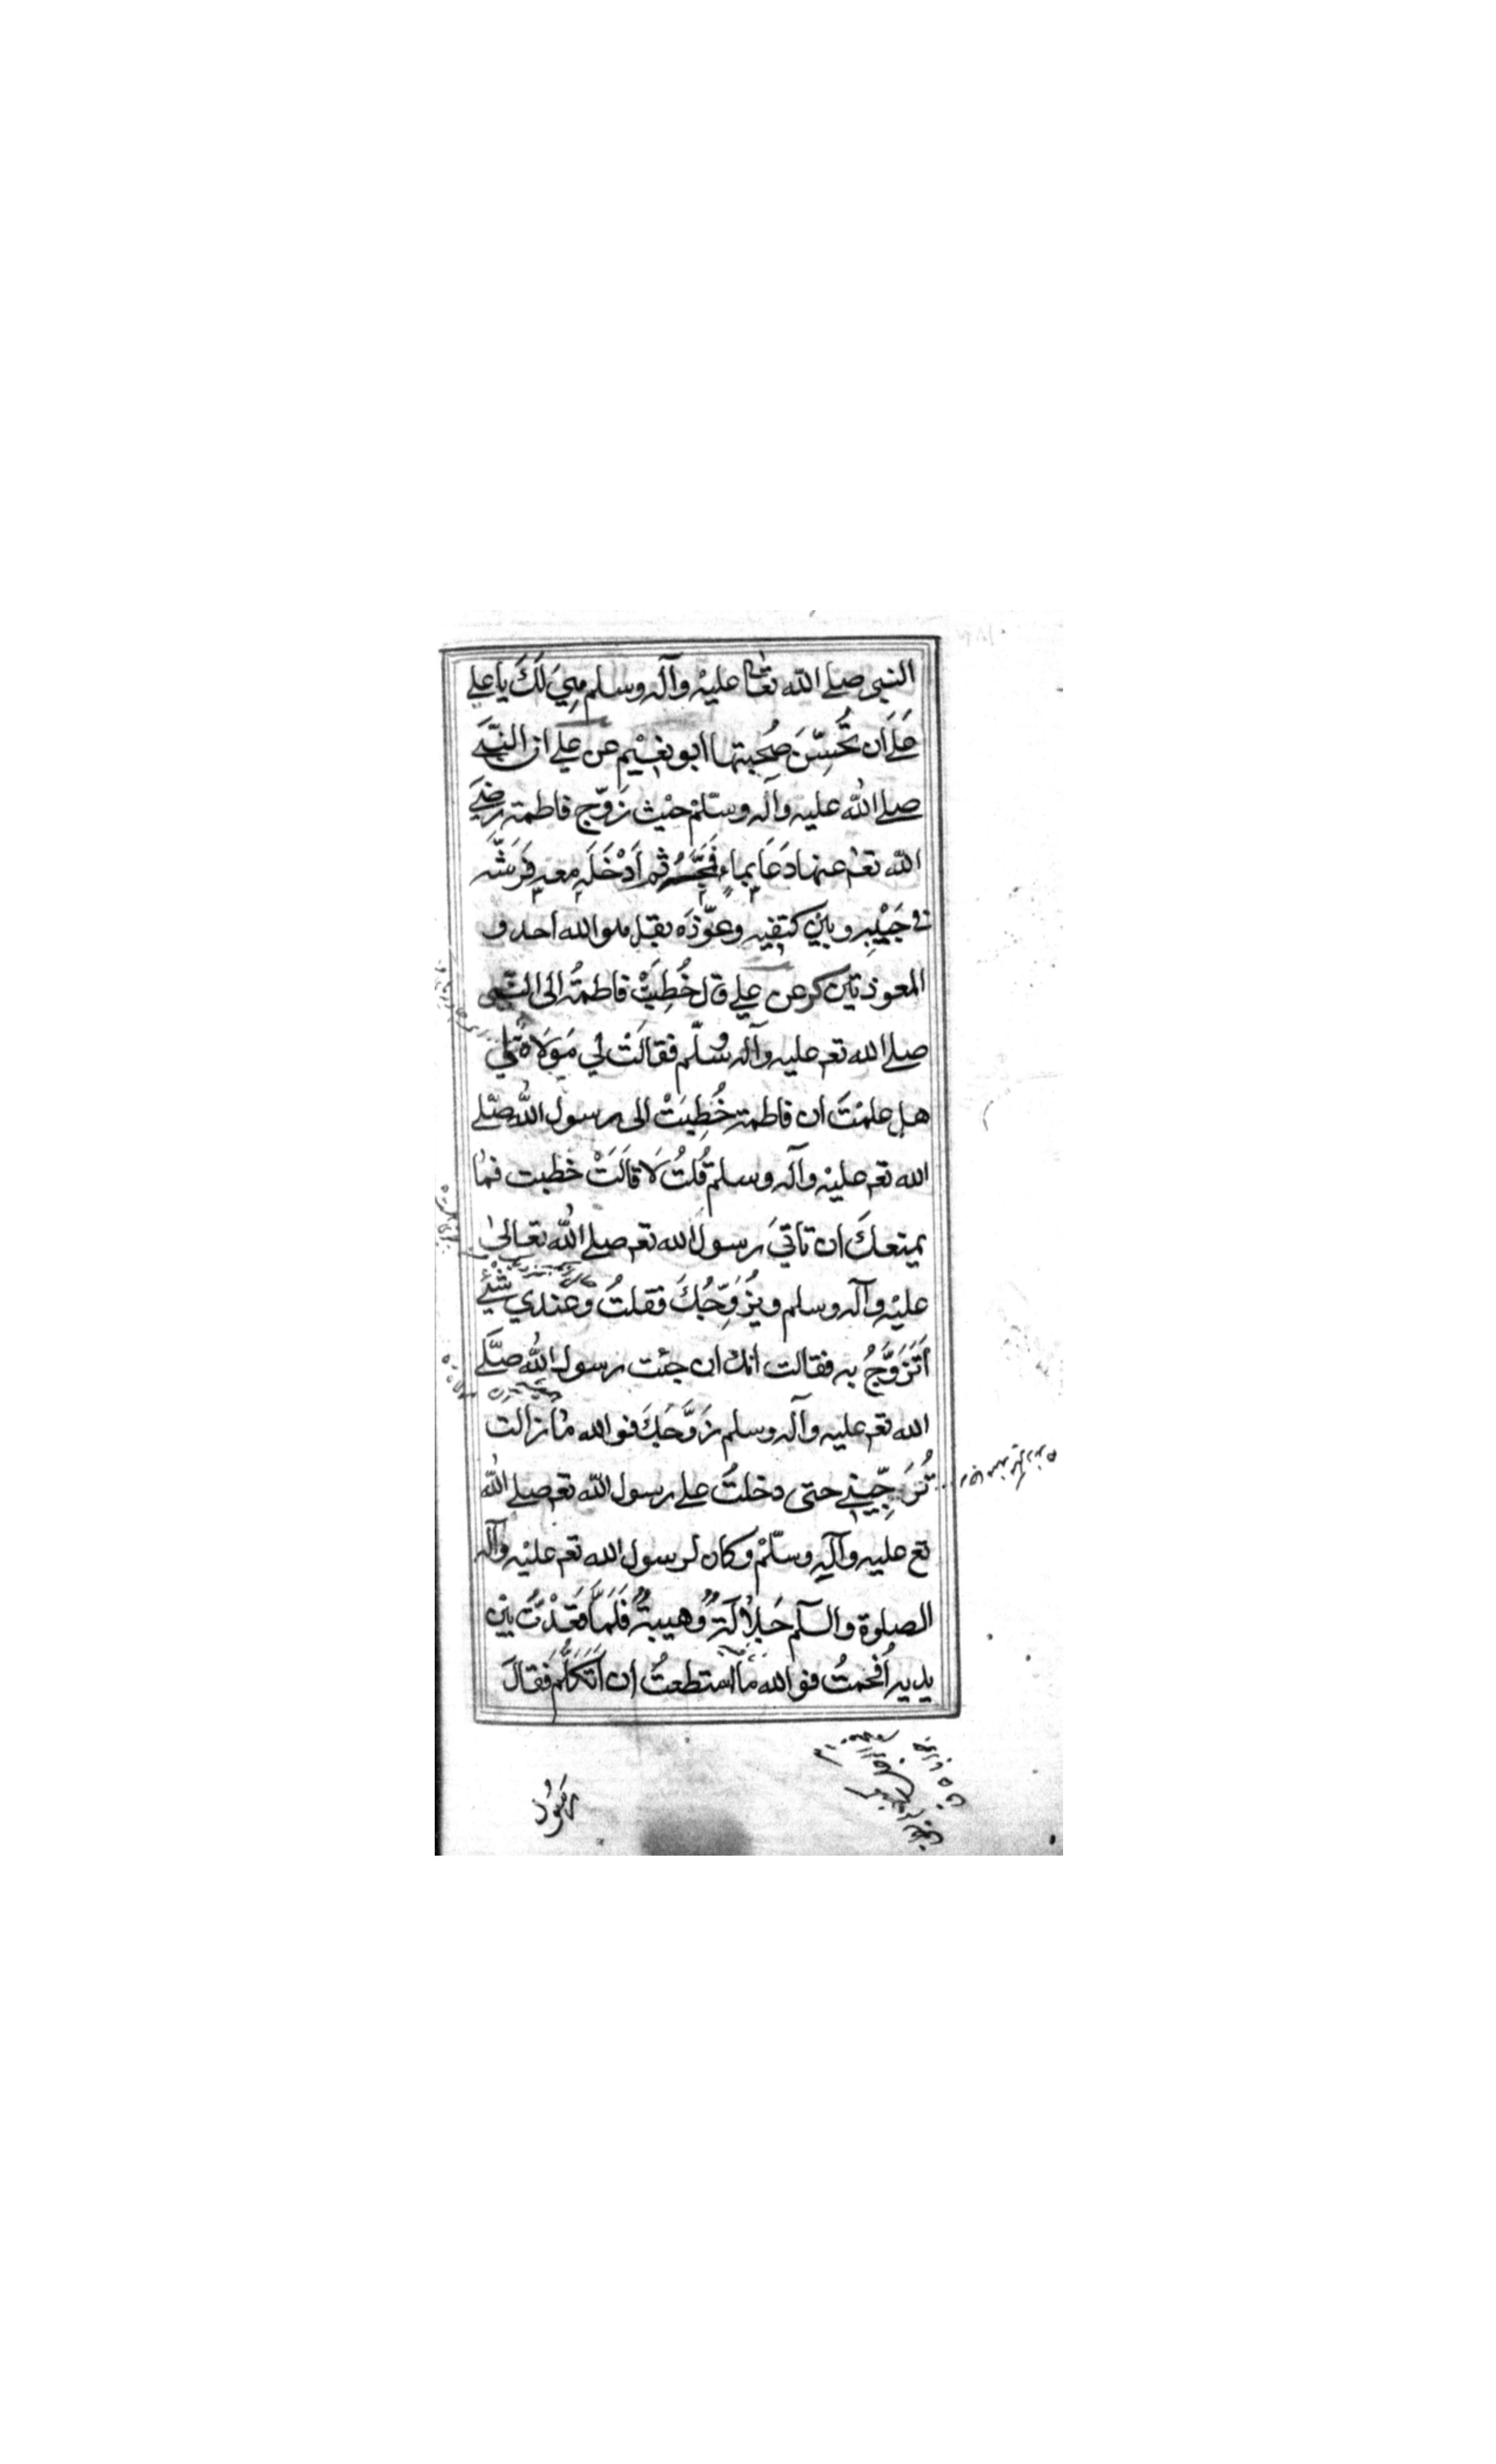 النبي صلے الله تعالى عليْه وآله وسلم هِيَ لَكَ يا علے
عَلَے ان تُحَسِّنَ صُحبتها ابو نعيْم عن علے ان النبَّے
صلے الله عليه وآله وسلّمْ حيْث زَوّج فاطمة رضِيَ
الله تعم عنها دَعَا بماء فَمَجَّهُ ثم اَدْخَلَه معه فَرَشّه
في جَيْبِه وبيْن كتفيه وعوّذه بقل هو الله احد و
المعوذتين كر عن علے قال خُطِبَتْ فاطمةُ الى النبي
صلے الله تعم عليه وآله وسلّم فقالَتْ لي مَوْلاة لي
هل علمْتَ ان فاطمة خُطِبَتْ الى رسول الله صلے
الله تعم عليْه وآله وسلم قُلتُ لَا قالَتْ خطبت فما
يمنعكَ ان تاتيَ رسول الله تعم صلے الله تعالىٰ
عليْه وآله وسلم ويُزَوِّجُكَ فقلتُ وعندي شَيْئٌ
اَتَزَوَّجُ به فقالت انك ان جئت رسول الله صلَّے
الله تعم عليه وآله وسلم زَوَّجَكَ فو الله ما زالت
تُرَجِّيْنِے حتى دخلتُ علے رسول الله تعم صلے الله
تع عليه وآلِه وسلّمْ وكان لرسول الله تعم عليْه وآله
الصلوة والسلٓم جَلَالَةٌ وهيبةٌ فَلَمَّا قَعَدْتُ بيْن
يديه اُفحِمتُ فو الله ما استطعتُ ان اَتَكَلَّمَ فَقالَ
رَسُول